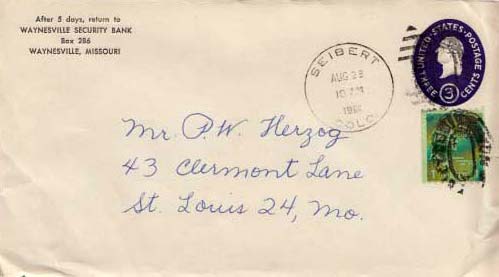 After 5 days, return to
WAYNESVILLE SECURITY BANK
Box 286
WAYNESVILLE, MISSOURI
SEIBERT
AUG 23
COLO.
UNITED·STATES·POSTAGE
THREE 3 CENTS
Mr. P.W. Herzog
43 Clermont Lane
St. Louis 24, Mo.